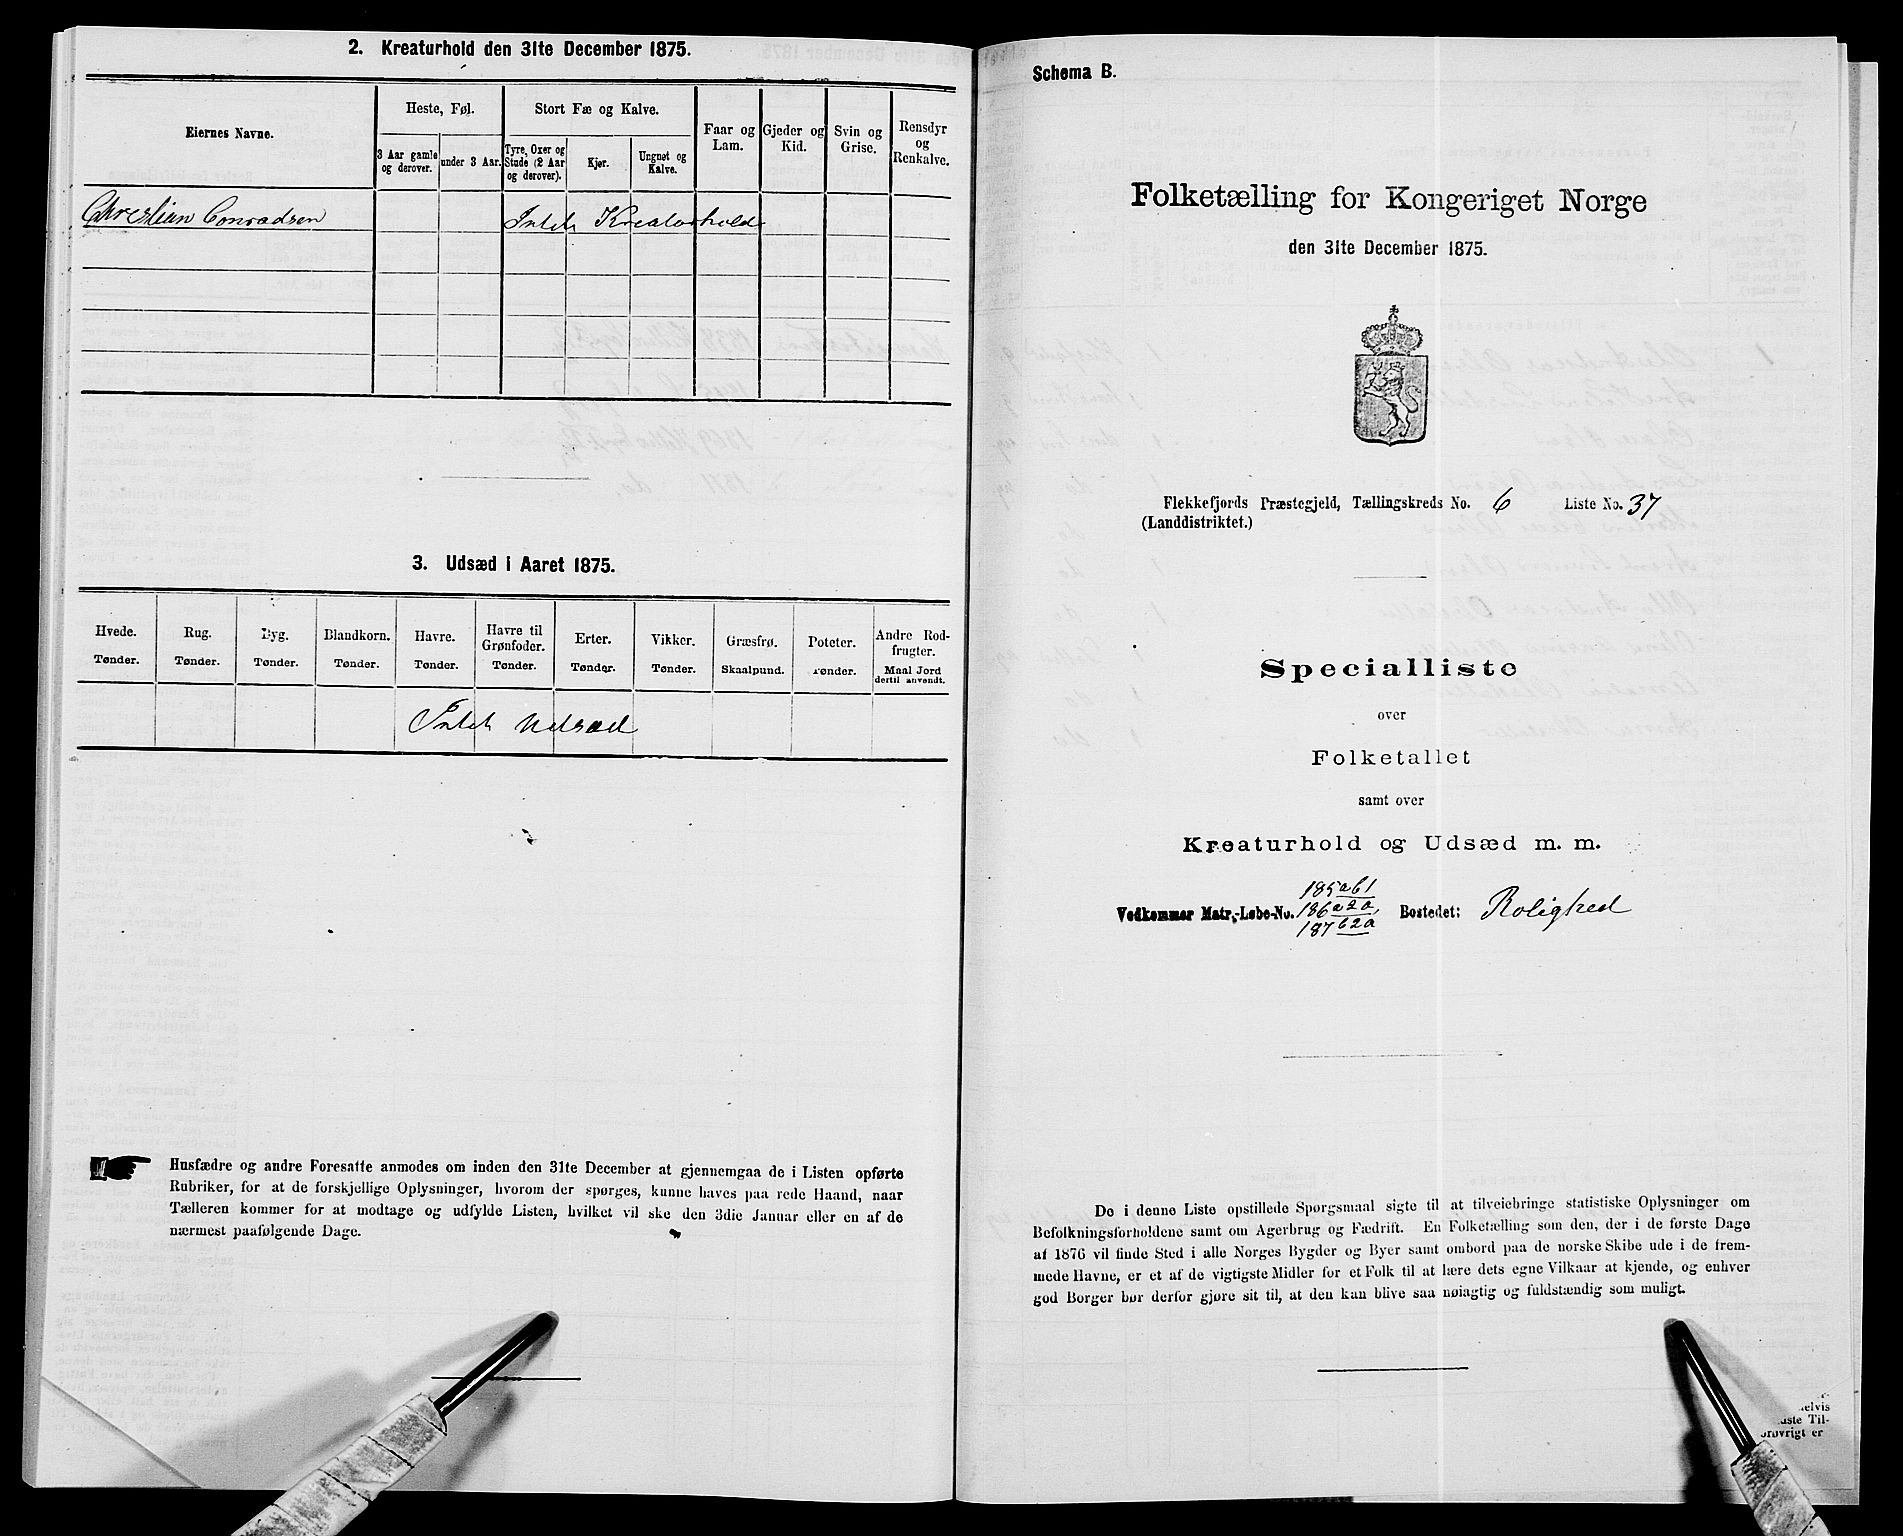 2. Kreaturhold den 31te December 1875.
Eiernes Navne.
Heste, Føl.
Stort Fæ og Kalve.
Faar og Lam.
Gjeder og Kid.
Svin og Grise.
Rensdyr og Renkalve.
3 Aar gamle og derover.
under 3 Aar.
Tyre, Oxer og Stude (2 Aar og derover).
Kjør.
Ungnøt og Kalve.
Christian Conradsen Intet Kreaturhold
3. Udsæd i Aaret 1875.
Hvede. Rug. Byg. Blandkorn. Havre. Havre til Grønfoder. Erter. Vikker. Græsfrø. Poteter. Andre Rodfrugter.
Tønder. Tønder. Tønder. Tønder. Tønder. Tønder. Tønder. Tønder. Skaalpund. Tønder. Maal Jord dertil anvendt.
Intet Udsæd
Husfædre og andre Foresatte anmodes om inden den 31te December at gjennemgaa de i Listen opførte
Rubriker, for at de forskjellige Oplysninger, hvorom der spørges, kunne haves paa rede Haand, naar
Tælleren kommer for at modtage og udfylde Listen, hvilket vil ske den 3die Januar eller en af de
nærmest paafølgende Dage.
Schema B.
Folketælling for Kongeriget Norge
den 31te December 1875.
Flekkefjords Præstegjeld, Tællingskreds No. 6 Liste No. 37
(Landdistriktet.)
Specialliste
over
Folketallet
samt over
Kreaturhold og Udsæd m. m.
185 a61
Vedkommer Matr.-Løbe-No. 186 a2a, Bostedet: Rolighed
187 62a
De i denne Liste opstillede Spørgsmaal sigte til at tilveiebringe statistiske Oplysninger om
Befolkningsforholdene samt om Agerbrug og Fædrift. En Folketælling som den, der i de første Dage
af 1876 vil finde Sted i alle Norges Bygder og Byer samt ombord paa de norske Skibe ude i de frem-
mede Havne, er et af de vigtigste Midler for et Folk til at lære dets egne Vilkaar at kjende, og enhver
god Borger bør derfor gjøre sit til, at den kan blive saa nøiagtig og fuldstændig som muligt.